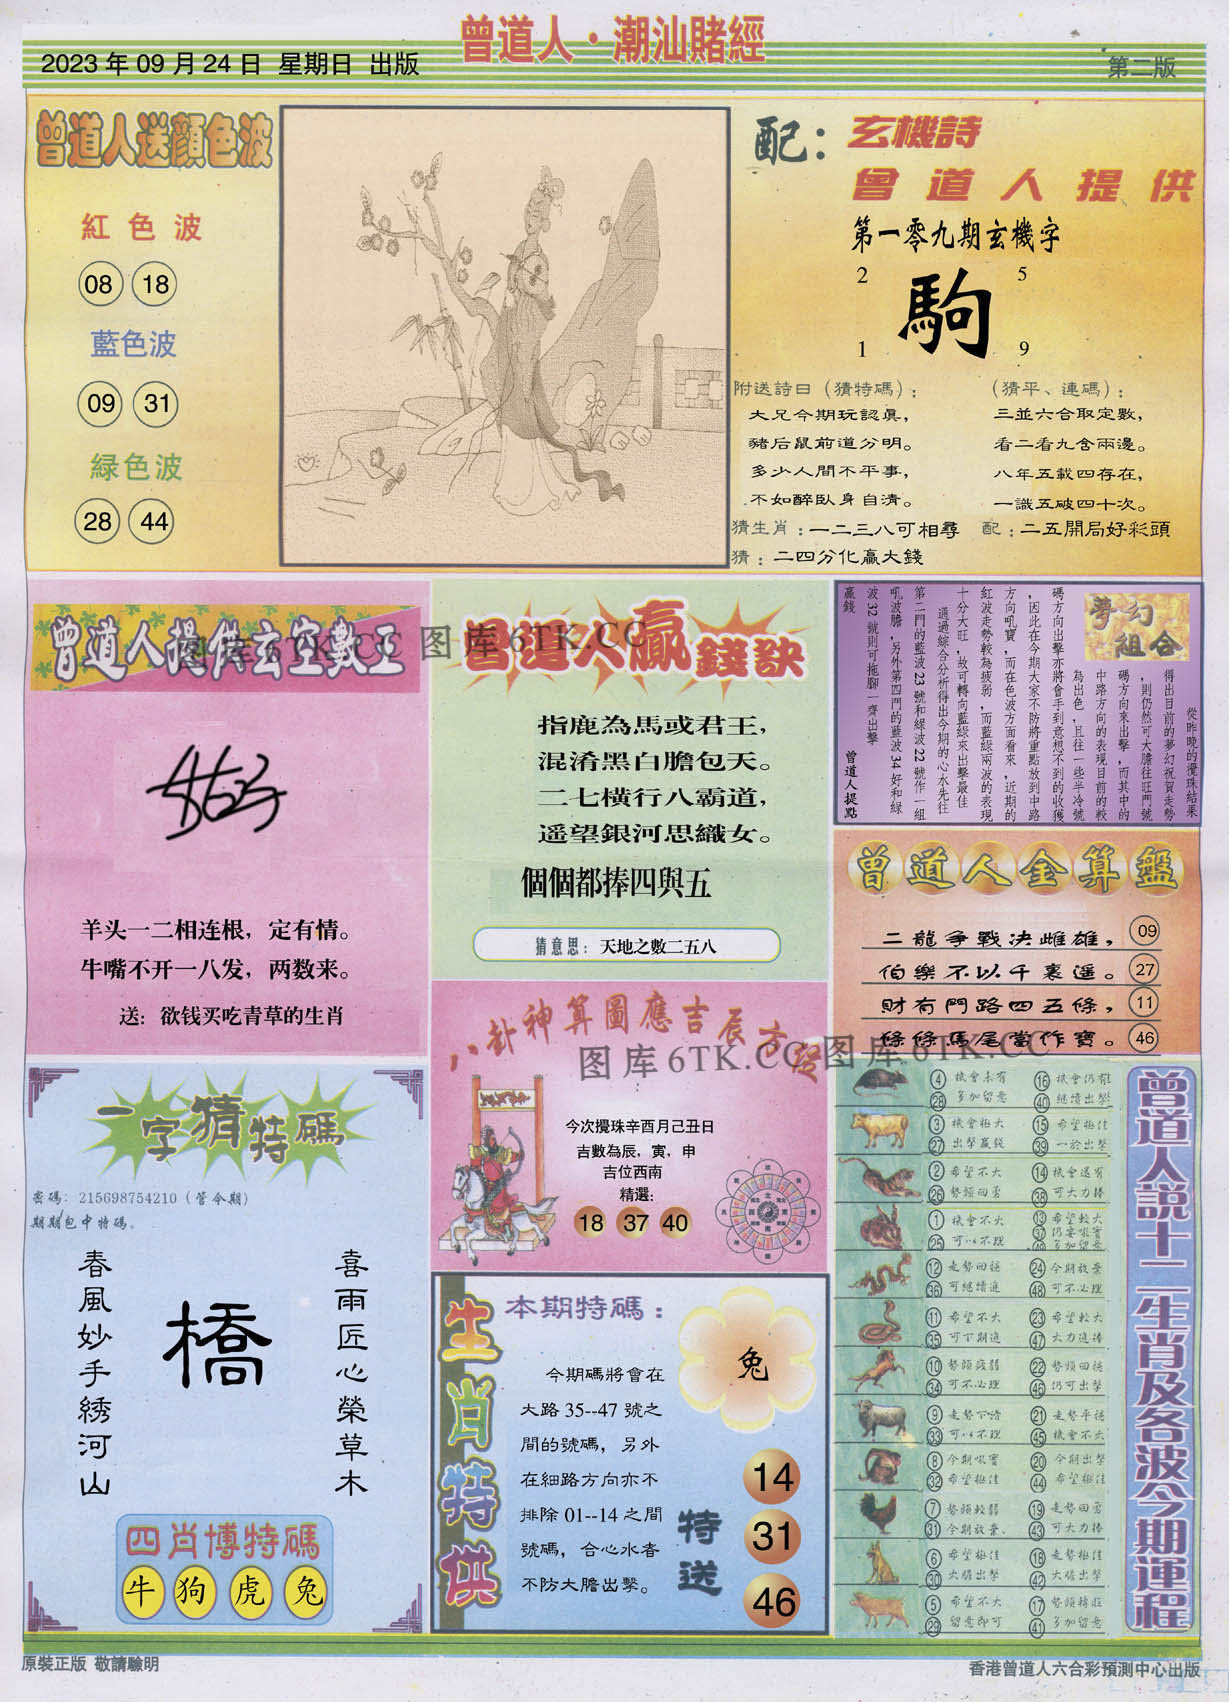 曾道人·潮汕賭經
2023年09月24日 星期日 出版
第二版
曾道人送顏色波
紅色波
08 18
藍色波
09 31
緑色波
28 44
配：玄機詩
曾道人提供
第一零九期玄機字
2 5
駒
1 9
附送詩曰（猜特碼）：
大兄今期玩認真，
豬后鼠前道分明。
多少人間不平事，
不如醉臥身自清。
（猜平、連碼）：
三並六合取定數，
看二看九含兩邊。
八年五載四存在，
一識五破四十次。
猜生肖：一二三八可相尋 配：二五開局好彩頭
猜：二四分化贏大錢
曾道人提供玄空數王
羊头一二相连根，定有情。
牛嘴不开一八发，两数来。
送：欲钱买吃青草的生肖
曾道人贏錢訣
指鹿為馬或君王，
混淆黑白膽包天。
二七横行八霸道，
遥望銀河思織女。
個個都捧四與五
猜意思：天地之數二五八
夢幻組合
從昨晚的攪珠結果
得出目前的夢幻祝賀走勢
，則仍然可大膽往旺門號
碼方向來出擊，而其中的
中路方向的表現目前的較
為出色，且往一些半冷號
碼方向出擊亦將會手到意想不到的收獲
，因此在今期大家不防將重點放到中路
方向吼寶，而在色波方面看來，近期的
紅波走勢較為疲弱，而藍綠兩波的表現
十分大旺，故可轉向藍綠來出擊最佳
通過綜合分析得出今期的心水先往
第二門的藍波23號和綠波22號作一組
吼波膽，另外第四門的藍波34好和綠
波32號則可拖腳一齊出擊
贏錢
曾道人提點
曾道人金算盤
二龍争戰决雌雄， 09
伯樂不以千裏遥。 27
財有門路四五條， 11
條條馬尾當作寶。 46
八卦神算圖應吉辰方位
今次攪珠辛酉月己丑日
吉數為辰，寅，申
吉位西南
精選:
18 37 40
一字猜特碼
密碼：215698754210（管今期）
期期包中特碼。
喜雨匠心榮草木
橋
春風妙手綉河山
四肖博特碼
牛 狗 虎 兔
生肖特供
本期特碼：
兔
今期碼將會在
大路35--47號之
間的號碼，另外
在細路方向亦不
排除01--14之間
號碼，合心水者
不防大膽出擊。
特送
14
31
46
曾道人説十二生肖及各波今期運程
④ 機會未有 ⑯ 機會仍有
㉘ 多加留意 ㊵ 繼續出擊
③ 機會極大 ⑮ 希望極佳
㉗ 出擊贏錢 ㊴ 一於出擊
② 希望不大 ⑭ 機會還有
㉖ 勢頭回勇 ㊳ 可大力捧
① 機會不大 ⑬ 希望較大
㉕ 可以不理 ㊲ 仍要吼實
㊾ 多加留意
⑫ 走勢回穩 ㉔ 今期放棄
㊱ 可繼續追 ㊽ 可不必理
⑪ 希望不大 ㉓ 希望較大
㉟ 可下期追 ㊼ 大力追捧
⑩ 勢頭疲弱 ㉒ 勢頭回穩
㉞ 可不必理 ㊻ 仍可出擊
⑨ 走勢下滑 ㉑ 走勢平穩
㉝ 可以不理 ㊺ 機會不大
⑧ 今期吼實 ⑳ 今期出擊
㉜ 希望極佳 ㊹ 希望極佳
⑦ 勢頭較弱 ⑲ 走勢回勇
㉛ 今期放棄. ㊸ 可大力捧
⑥ 希望極佳 ⑱ 走勢極佳
㉚ 大膽出擊 ㊷ 大膽出擊
⑤ 希望不大 ⑰ 勢頭犄旺
㉙ 留意即可 ㊶ 多加留意
原裝正版 敬請驗明
香港曾道人六合彩預測中心出版
图库6TK.CC 图库6TK.CC
图库6TK.CC 图库6TK.CC